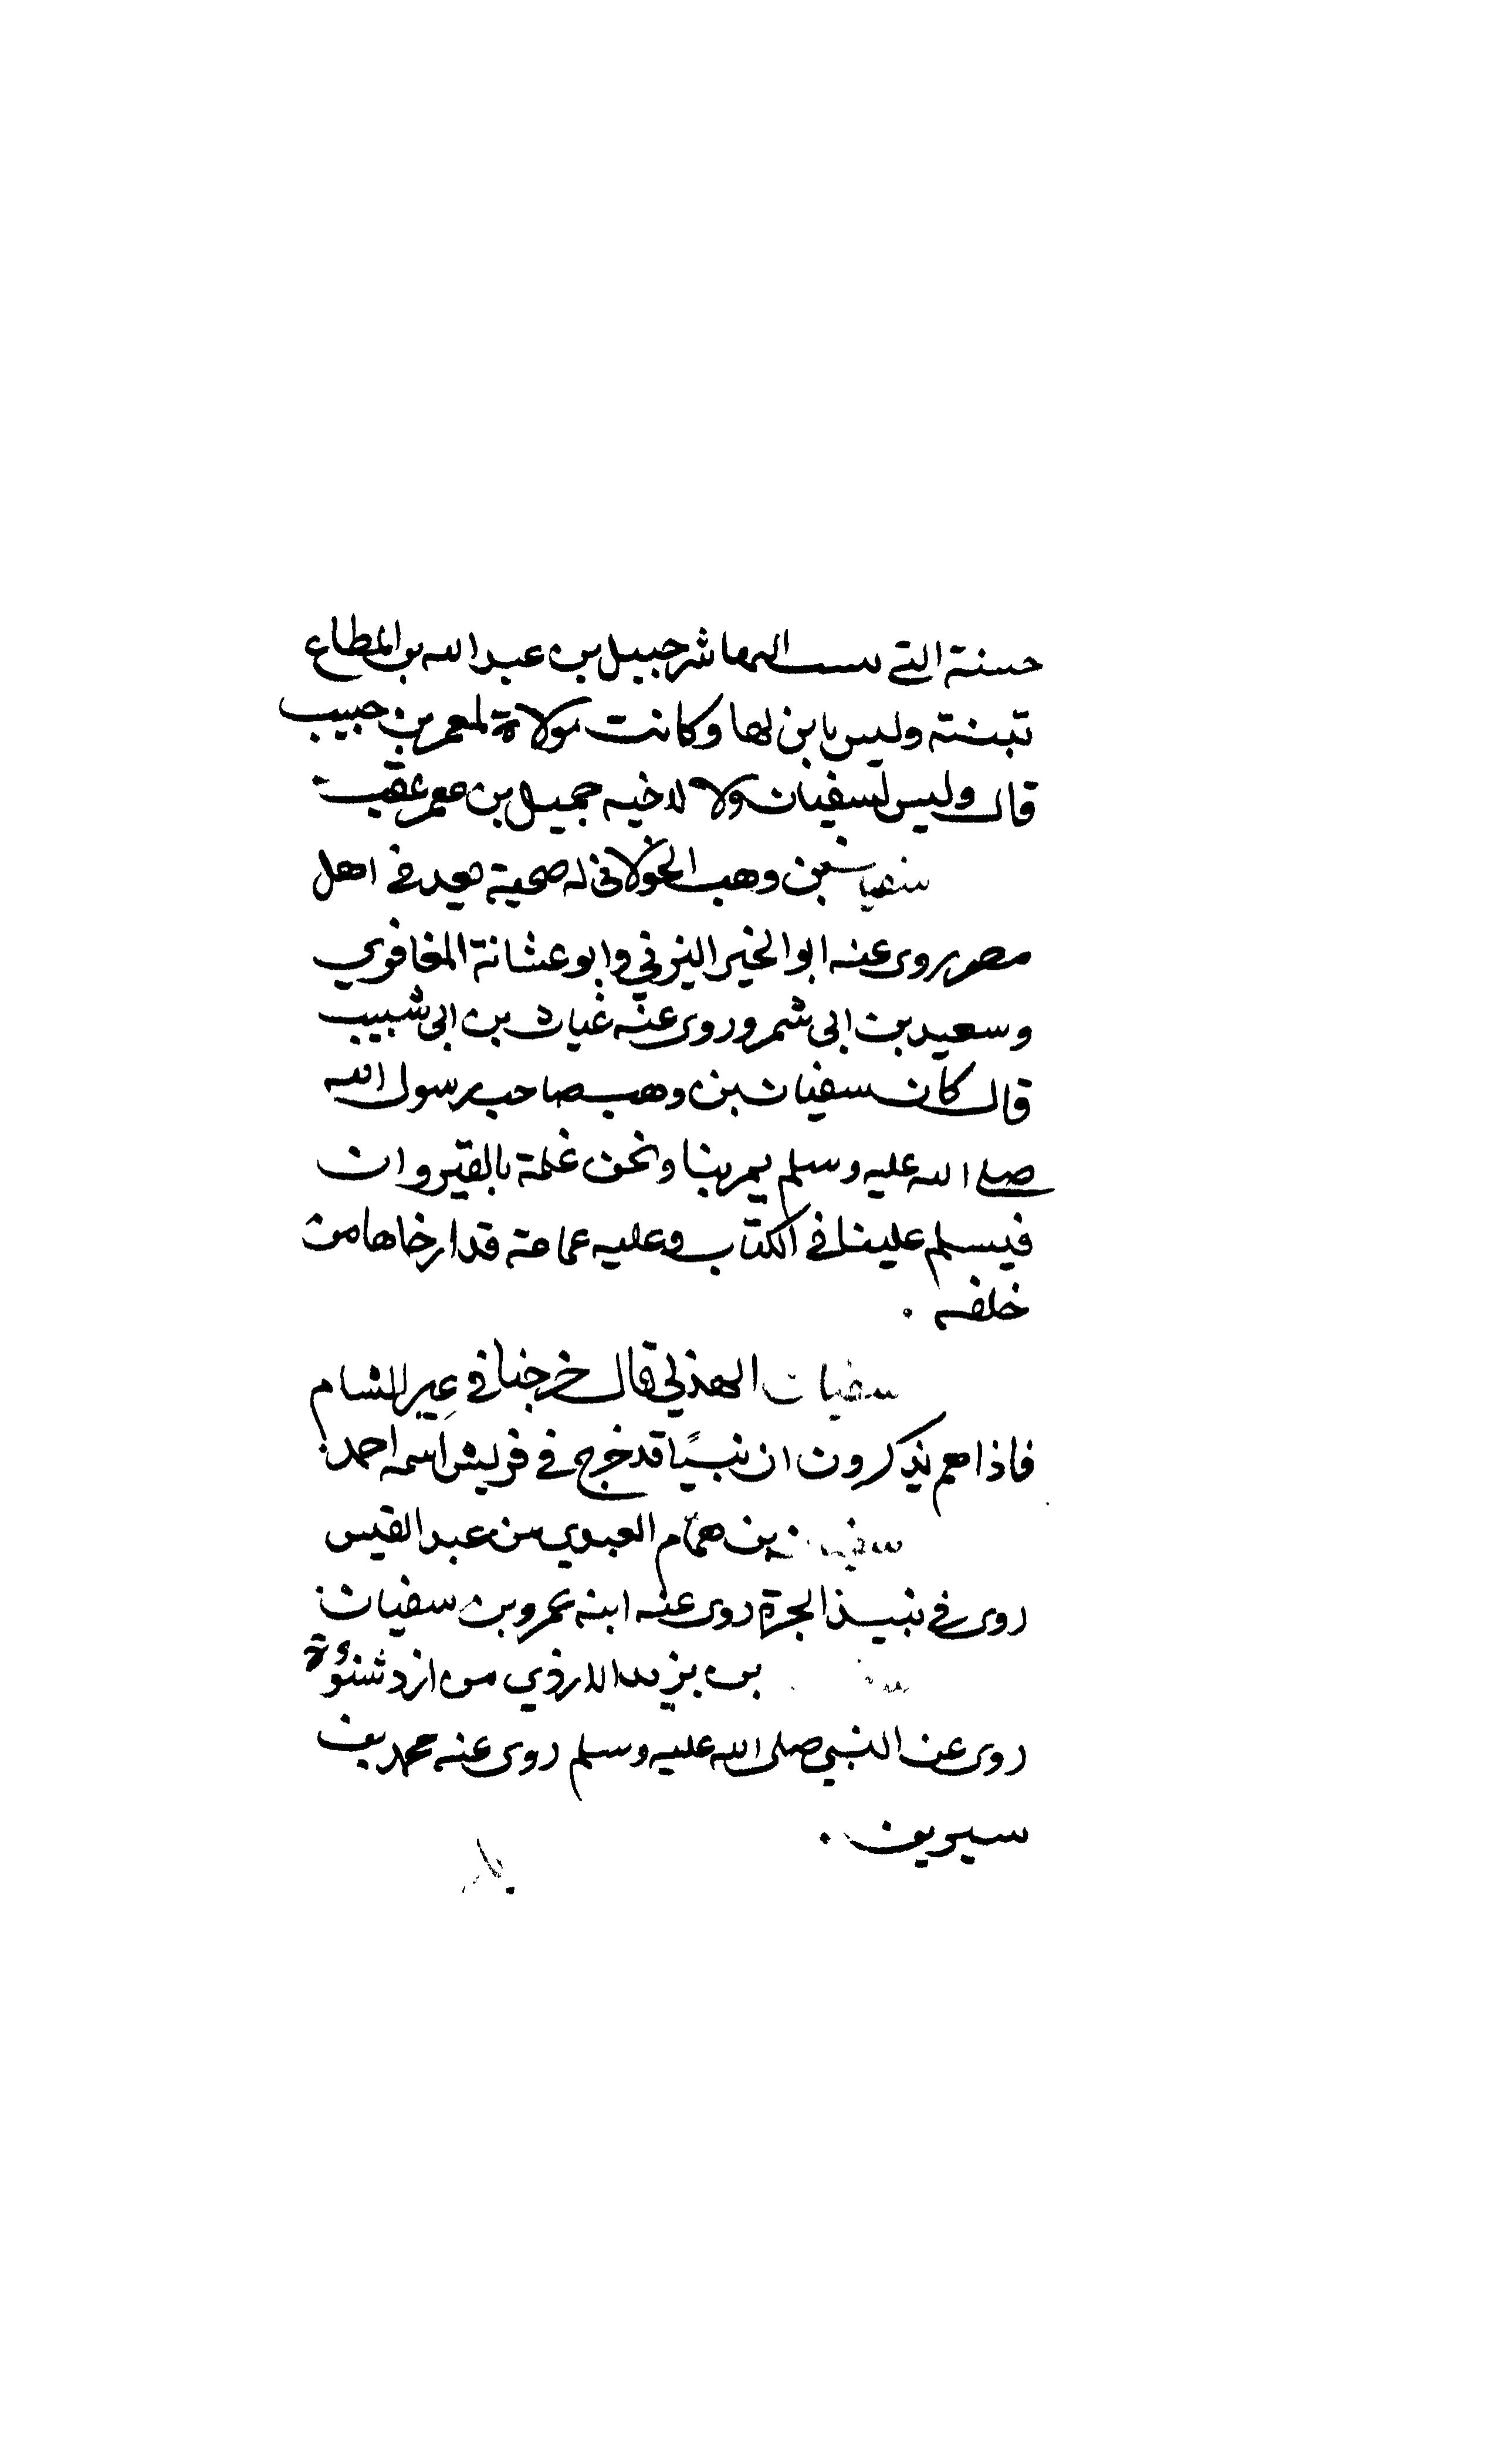 حسنة التي نسب اليها شرحبيل بن عبد الله بن المطاع
تبنته وليس بابن لها وكانت مولاة لمعمر بن حبيب
قال وليس لسفيان ولا لاخيه جميل بن معمر عقب
سفيان بن وهب الخولاني له صحبة يعد في اهل
مصر روى عنه ابو الخير اليزني وابو عشانة المغافري
وسعيد بن ابي شمر وروى عنه غياث بن ابي شبيب
قال كان سفيان بن وهب صاحب رسول الله
صلى الله عليه وسلم يمر بنا ونحن غلمة بالقيروان
فيسلم علينا في الكتاب وعليه عمامة قد ارخاها من
خلفه .
سفيان الهذلي قال خرجنا في عير للشام
فاذا هم يذكرون ان نبيًا قد خرج في قريش اسمه احمد .
سفيان بن همام العبدي من عبد القيس
روى في نبيذ الجرة روى عنه ابنه عمرو بن سفيان .
بن يزيد الازدي من ازد شنؤة
روى عن النبي صلى الله عليه وسلم روى عنه محمد بن
سيرين .